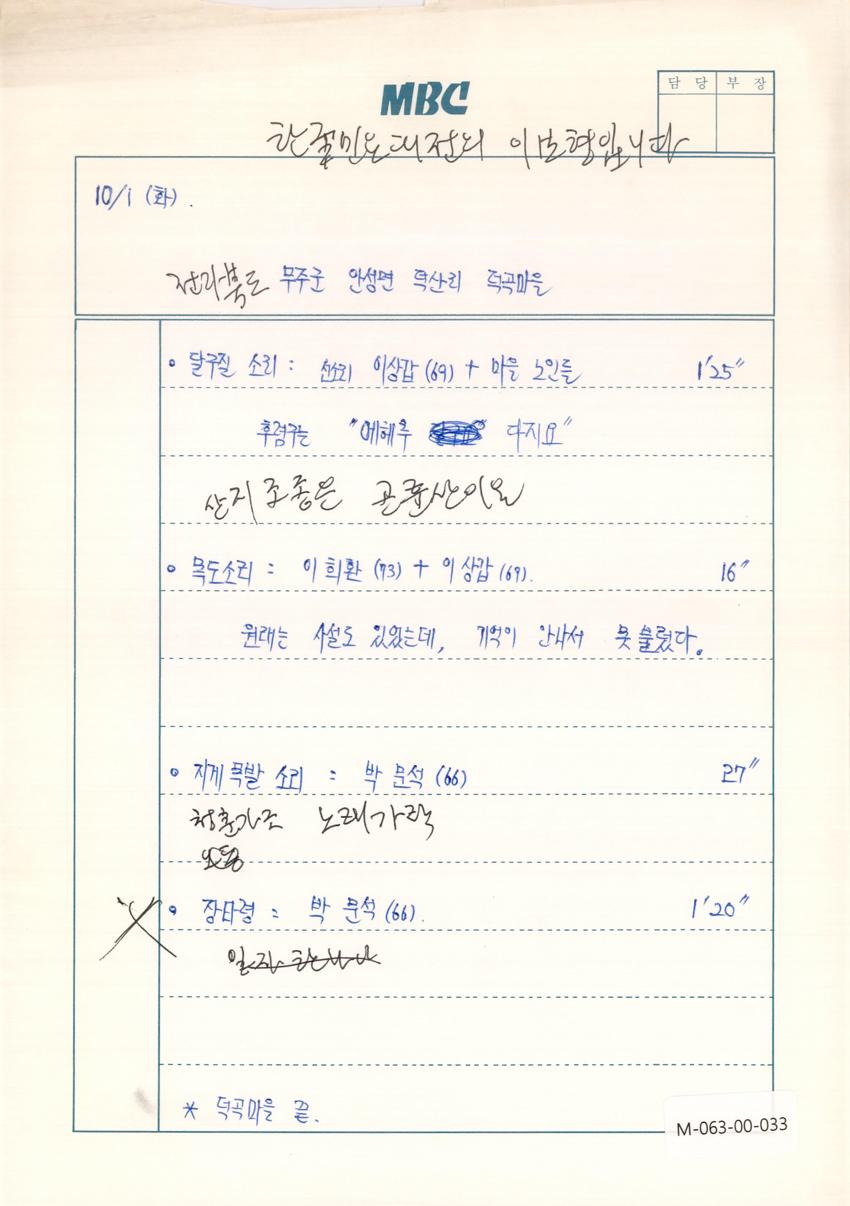 MBC
담 당 부 장
한국민요대전의 이보형입니다
10/1 (화).
전라북도 무주군 안성면 덕산리 덕곡마을
• 달구질 소리 : 선소리 이상갑 (69) + 마을 노인들 1′25″
후렴구는 "에헤루 다지요"
산지조종은 곤륜산이요
• 목도소리 : 이희환 (73) + 이상갑 (69). 16″
원래는 사설도 있었는데, 기억이 안나서 못 불렀다.
• 지게 목발 소리 : 박 문석 (66) 27″
청춘가조 노래가락
• 장타령 : 박 문석 (66). 1′20″
일자 한나나
* 덕곡마을 끝.
M-063-00-033